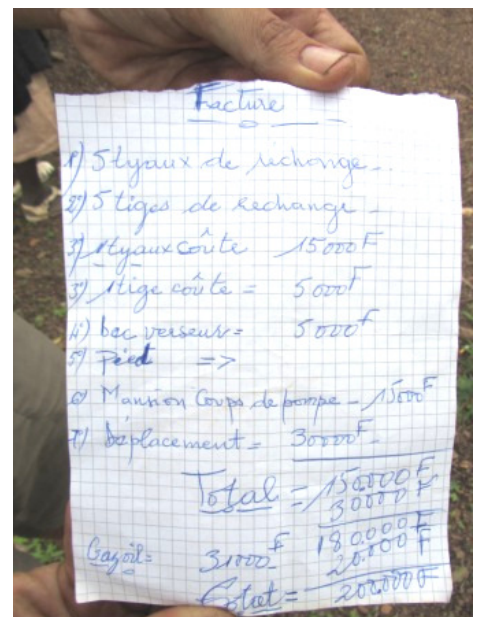 Facture
1) 5 tyaux de rechange -
2) 5 tiges de rechange -
3) 1 tyaux coûte 15000F
3) 1 tige coûte = 5000F
4) bec verseur = 5000F
5) Pied =>
6) Mansion Corps de pompe - 15000F
7) Déplacement = 30000F
Total = 150000F
30000F
180.000F
Gazoil = 31000F
20.000F
Total = 200.000F